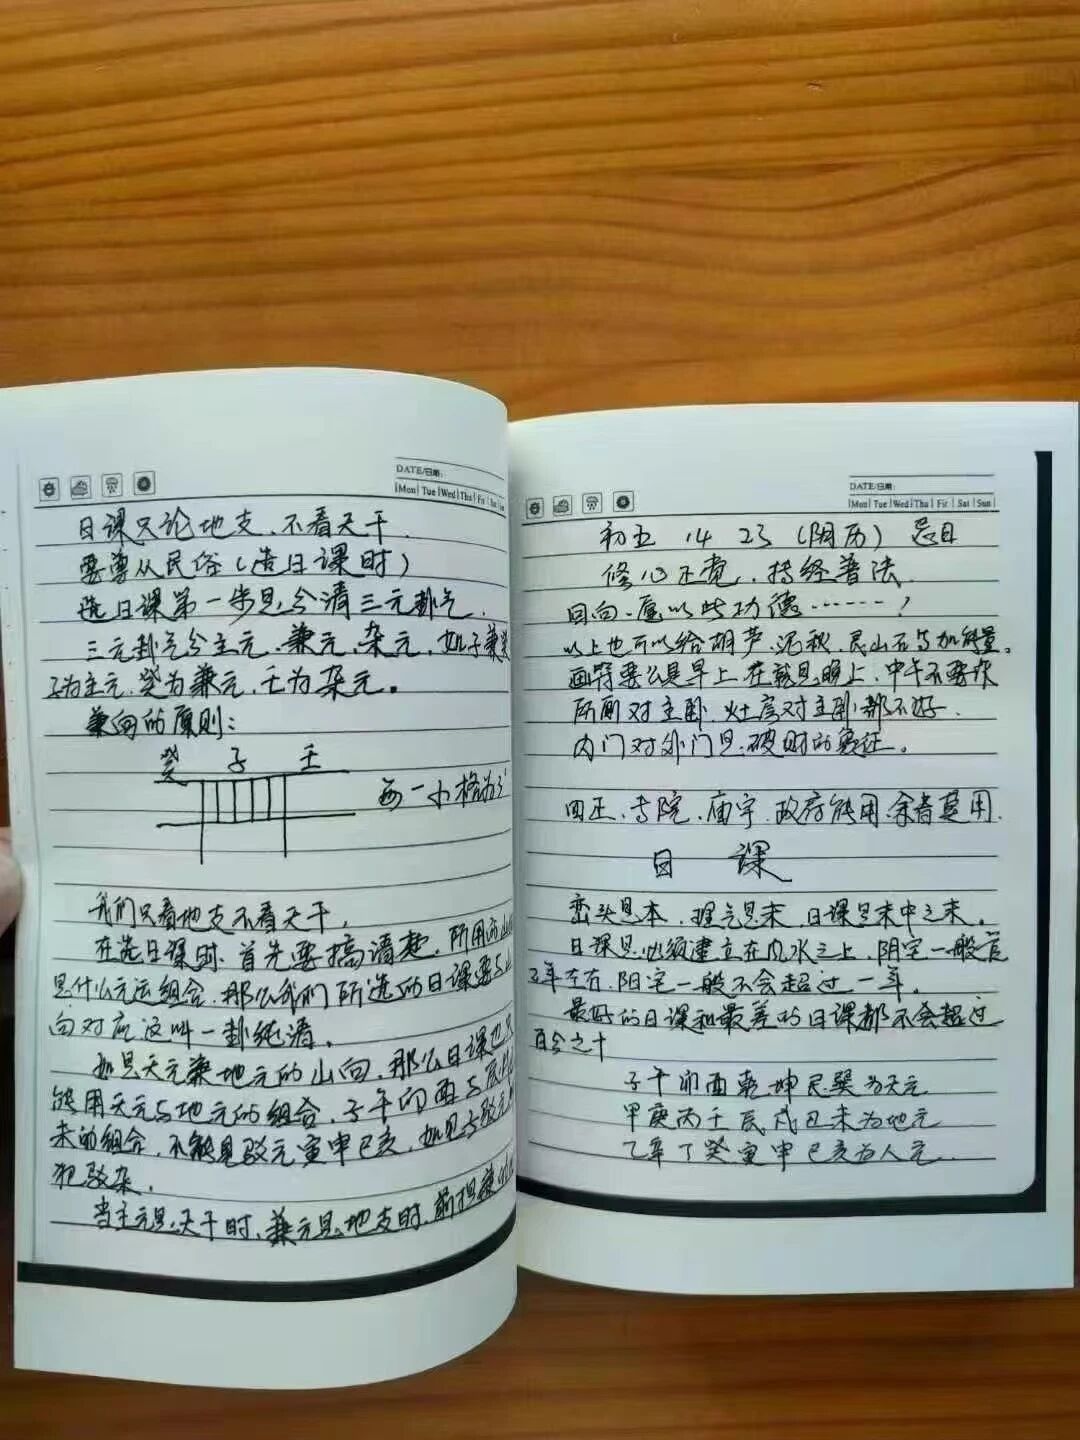 DATE/日期:
Mon Tue Wed Thu Fri Sat Sun
日课只论地支、不看天干.
要尊从民俗(造日课时)
选日课第一步是分清三元卦气.
三元卦气分主元、兼元、杂元,如子兼癸
子为主元,癸为兼元,壬为杂元。
兼向的原则:
癸 子 壬
每一小格为3°
我们只看地支不看天干,
在选日课时、首先要搞清楚,所用
是什么元运组合,那么我们所选的日课要与山
向对应这叫一卦纯清。
如是天元兼地元的山向,那么日课也只
能用天元与地元的组合,子午卯酉与辰戌丑
未的组合,不能见驳元寅申巳亥,如见
犯驳杂,
当主元是天干时,兼元是地支时,
DATE/日期:
Mon Tue Wed Thu Fir Sat Sun
初五 14 23 (阴历) 忌日
修心正觉、持经普法
回向、愿以此功德……!
以上也可以给葫芦、泥秋、艮山石等加能量。
画符要么是早上,在就是晚上,中午不要
厕所对主卧、灶房对主卧都不好.
内门对外门是破财的象征。
四正、寺院、庙宇、政府能用、余者莫用.
日 课
峦头是本,理气是末,日课是末中之末。
日课是必须建立在风水之上,阴宅一般管
三年左右,阳宅一般不会超过一年。
最好的日课和最差的日课都不会超过
百分之十
子午卯酉乾坤艮巽为天元
甲庚丙壬辰戌丑未为地元
乙辛丁癸寅申巳亥为人元